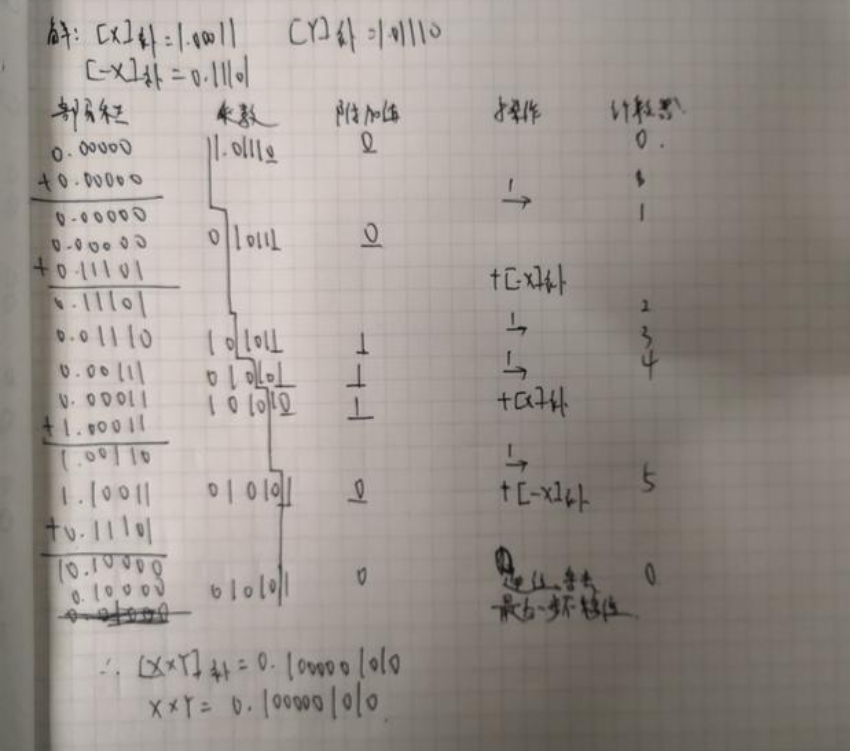 解: [X]补=1.00011 [Y]补=1.01110
[-X]补=0.11101
部分积 乘数 附加位 操作 计数器
0.00000 1.01110 0 0.
+0.00000
1→
0.00000 1
0.00000 010111 0
+0.11101 +[-X]补
0.11101 2
0.01110 101011 1 1→ 3
0.00111 010101 1 1→ 4
0.00011 101010 1 +[X]补
+1.00011
1.00110 1→
1.10011 010101 0 +[-X]补 5
+0.11101
10.10000
0.10000 010101 0 进位舍去 0
最后一步不移位
∴ [X×Y]补=0.1000001010
X×Y=0.1000001010